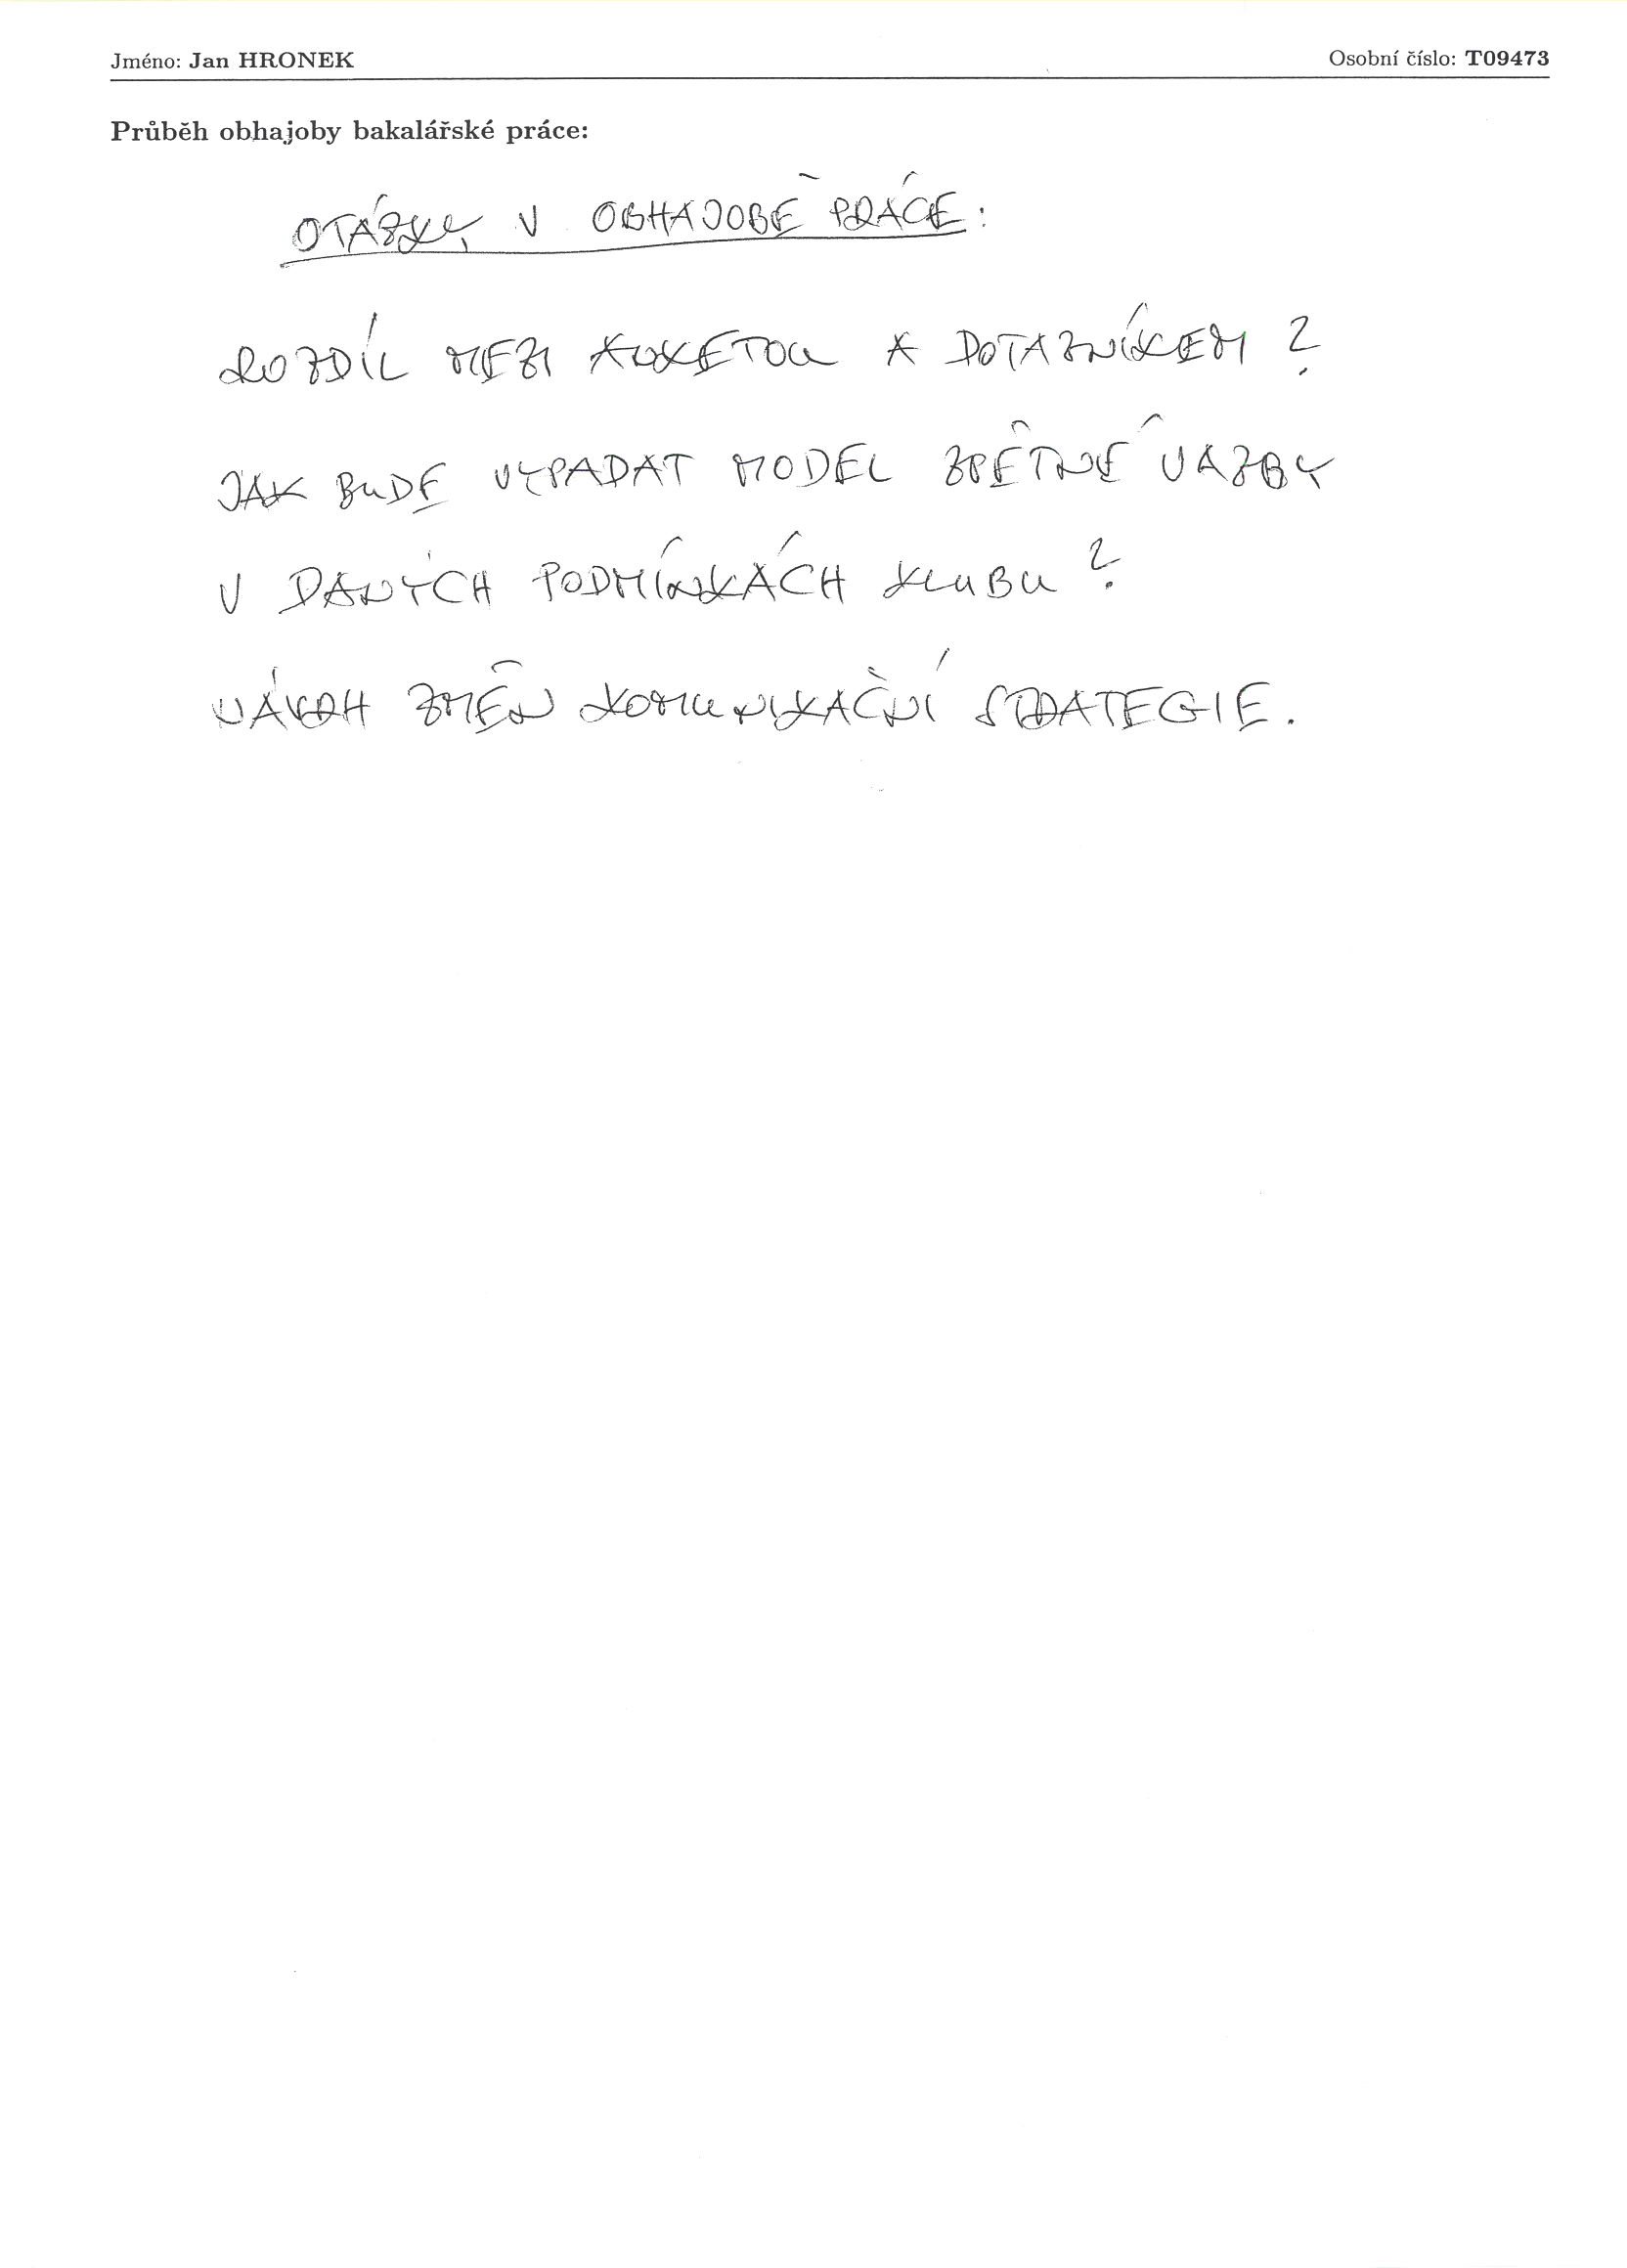 Jméno: Jan HRONEK Osobní číslo: T09473
Průběh obhajoby bakalářské práce:
OTÁZKY V OBHAJOBĚ PRÁCE:
ROZDÍL MEZI ANKETOU A DOTAZNÍKEM?
JAK BUDE VYPADAT MODEL ZPĚTNÉ VAZBY
V DANÝCH PODMÍNKÁCH KLUBU?
NÁVRH ZMĚN KOMUNIKAČNÍ STRATEGIE.